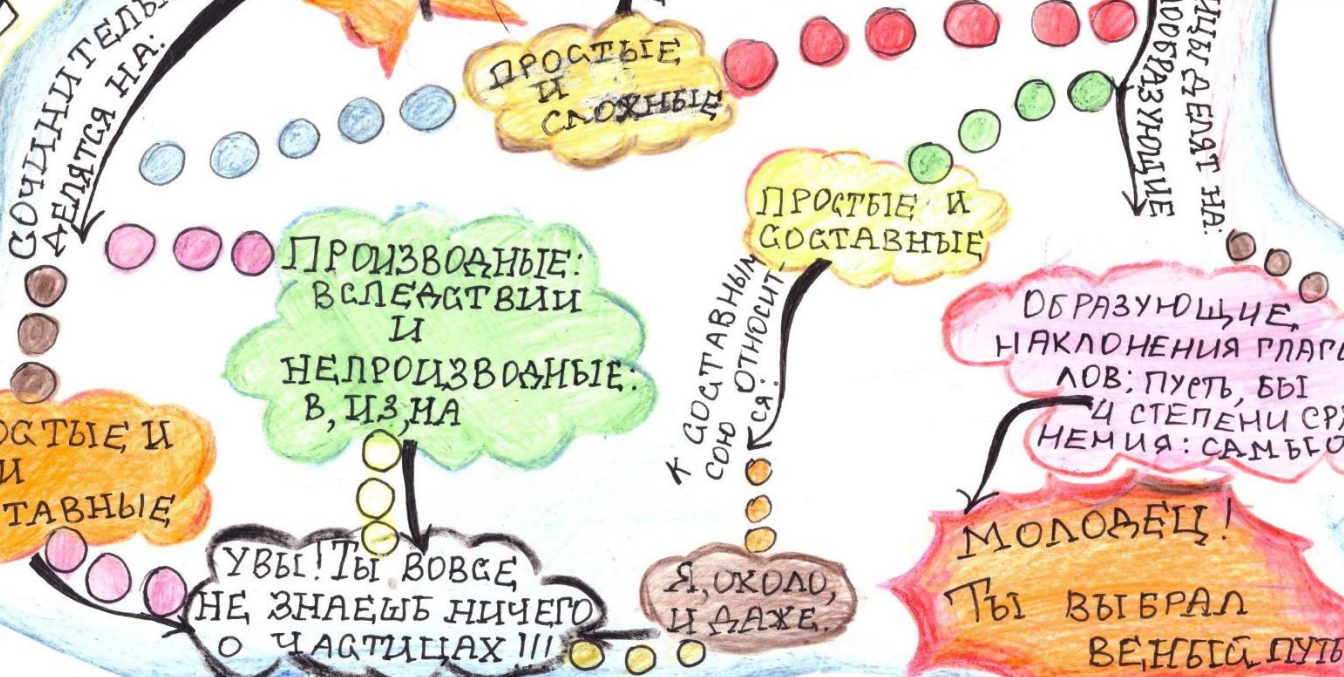 СОЧИНИТЕЛЬ
ДЕЛЯТСЯ НА:
ПРОСТЫЕ
И
СЛОЖНЫЕ
ИЦЫ ДЕЛЯТ НА:
ООБРАЗУЮЩИЕ
ПРОСТЫЕ И
СОСТАВНЫЕ
ПРОИЗВОДНЫЕ:
ВСЛЕДСТВИИ
И
НЕПРОИЗВОДНЫЕ:
В, ИЗ, НА
К СОСТАВНЫМ
СОЮ ОТНОСИТ
СЯ:
ОБРАЗУЮЩИЕ
НАКЛОНЕНИЯ ГЛАГО
ЛОВ: ПУСТЬ, БЫ
И СТЕПЕНИ СРА
НЕНИЯ:
ОСТЫЕ И
И
ТАВНЫЕ
УВЫ! ТЫ ВОВСЕ
НЕ ЗНАЕШЬ НИЧЕГО
О ЧАСТИЦАХ!!!
Я, ОКОЛО,
И ДАЖЕ.
МОЛОДЕЦ!
ТЫ ВЫБРАЛ
ВЕНЫЙ ПУТЬ